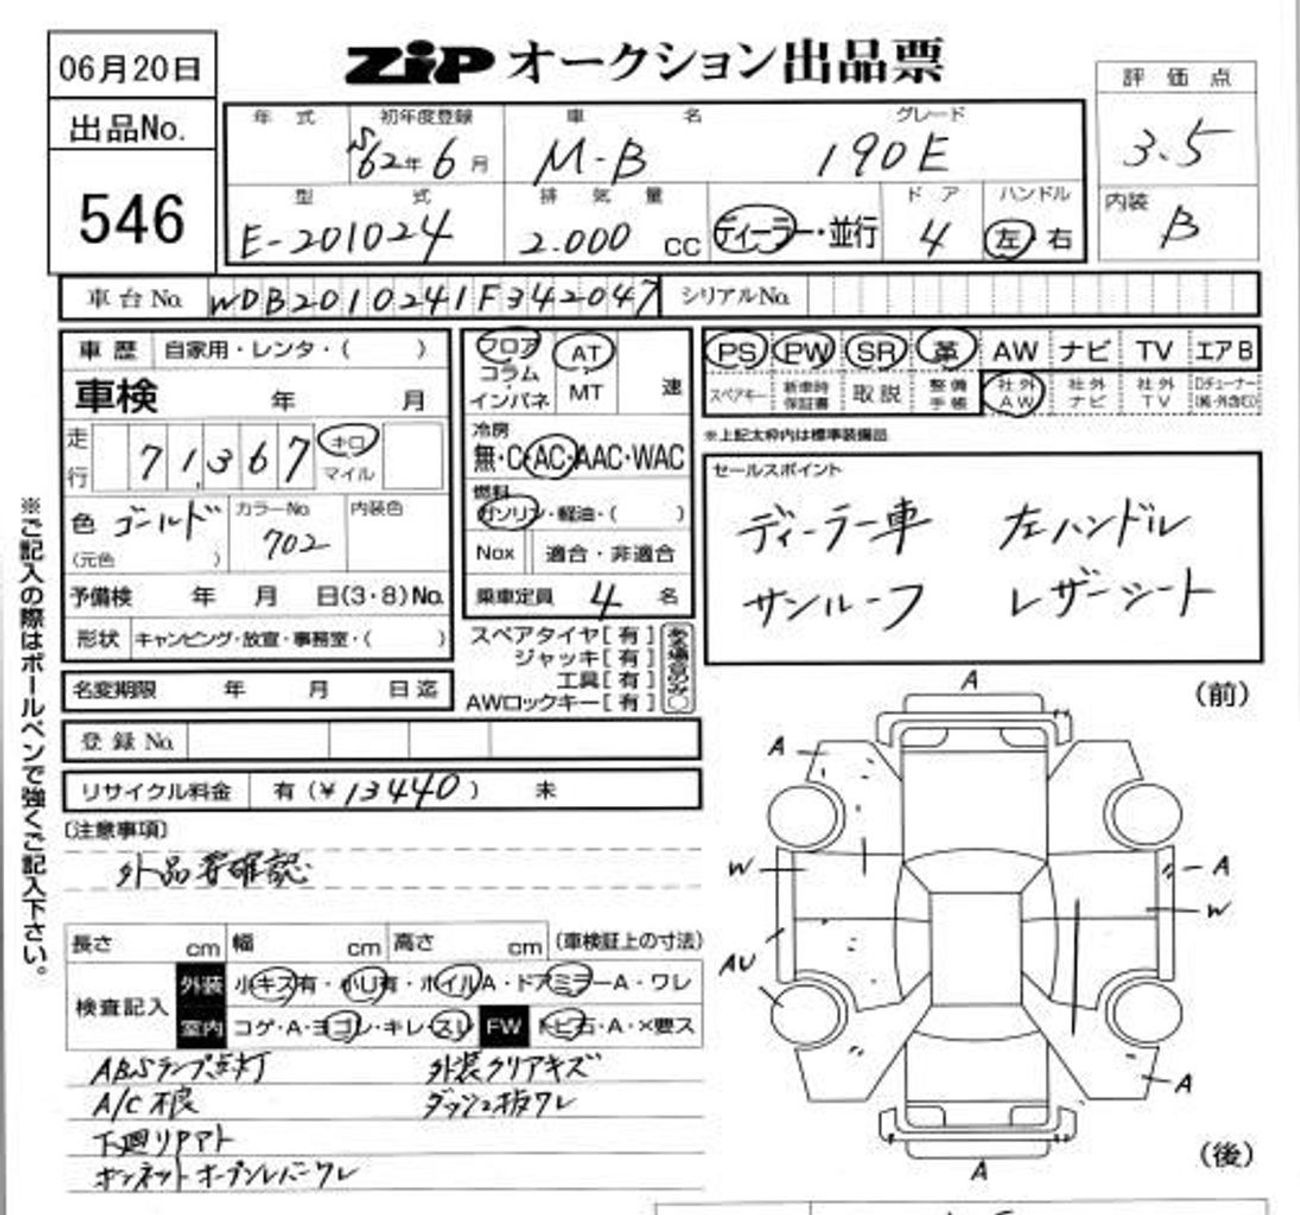 06月20日
ZIP オークション出品票
評価点
出品No.
年式 初年度登録 車名 グレード
S62年6月 M-B 190E
3.5
546
型式 排気量 ドア ハンドル
E-201024 2.000 CC ディーラー・並行 4 左・右
内装 B
車台No. WDB2010241F342047 シリアルNo.
車歴 自家用・レンタ・( )
車検 年 月
走行 71,367 キロ マイル
色 ゴールド (元色 ) カラーNo. 702 内装色
予備検 年 月 日(3・8)No.
形状 キャンピング・放宣・事務室・( )
名変期限 年 月 日迄
フロア・コラム・インパネ AT MT 速
冷房
無・C・AC・AAC・WAC
燃料
ガソリン・軽油・( )
Nox 適合・非適合
乗車定員 4 名
スペアタイヤ[有]
ジャッキ[有]
工具[有]
AWロックキー[有]
ある場合のみ○
PS PW SR 革 AW ナビ TV エアB
スペアキー 新車時保証書 取説 整備手帳 社外AW 社外ナビ 社外TV
※上記太枠内は標準装備品
セールスポイント
ディーラー車 左ハンドル
サンルーフ レザーシート
登録No.
リサイクル料金 有(¥13440) 未
〔注意事項〕
外品要確認
長さ cm 幅 cm 高さ cm (車検証上の寸法)
検査記入 外装 小キズ有・小U有・ホイルA・ドアミラーA・ワレ
室内 コゲ・A・ヨゴレ・キレ・スレ FW トビ石・A・×要ス
ABSランプ点灯 外装クリアキズ
A/C不良 ダッシュ板ワレ
下廻りサアト
ボンネットオープンレバーワレ
※ご記入の際はボールペンで強くご記入下さい。
(前)
A
A
W
A
W
AU
A
A
(後)